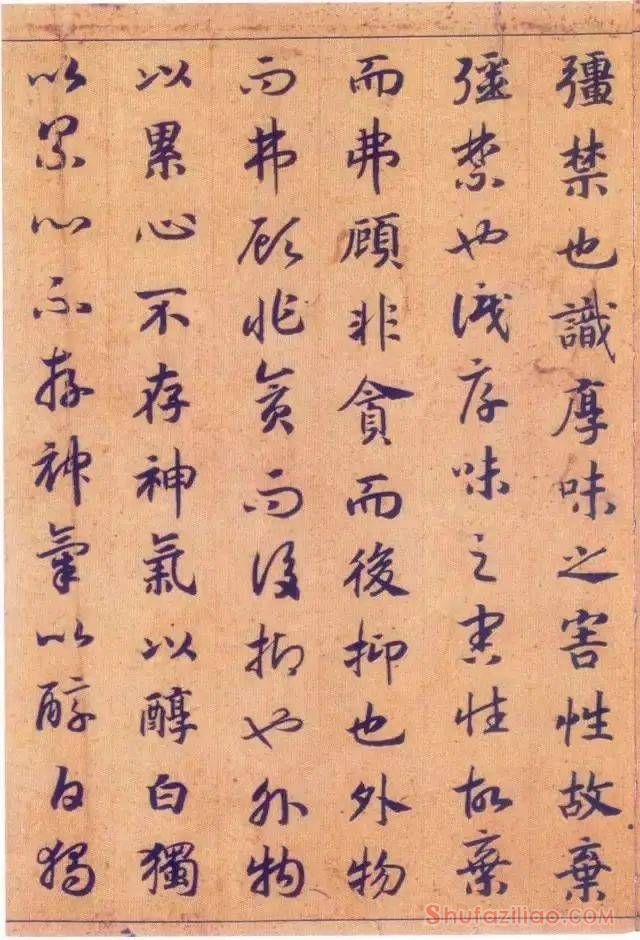 彊禁也識厚味之害性故棄
彊禁也識厚味之害性故棄
而弗顧非貪而後抑也外物
而弗顧非貪而後抑也外物
以累心不存神氣以醇白獨
以累心不存神氣以醇白獨
Shufaziliao.com